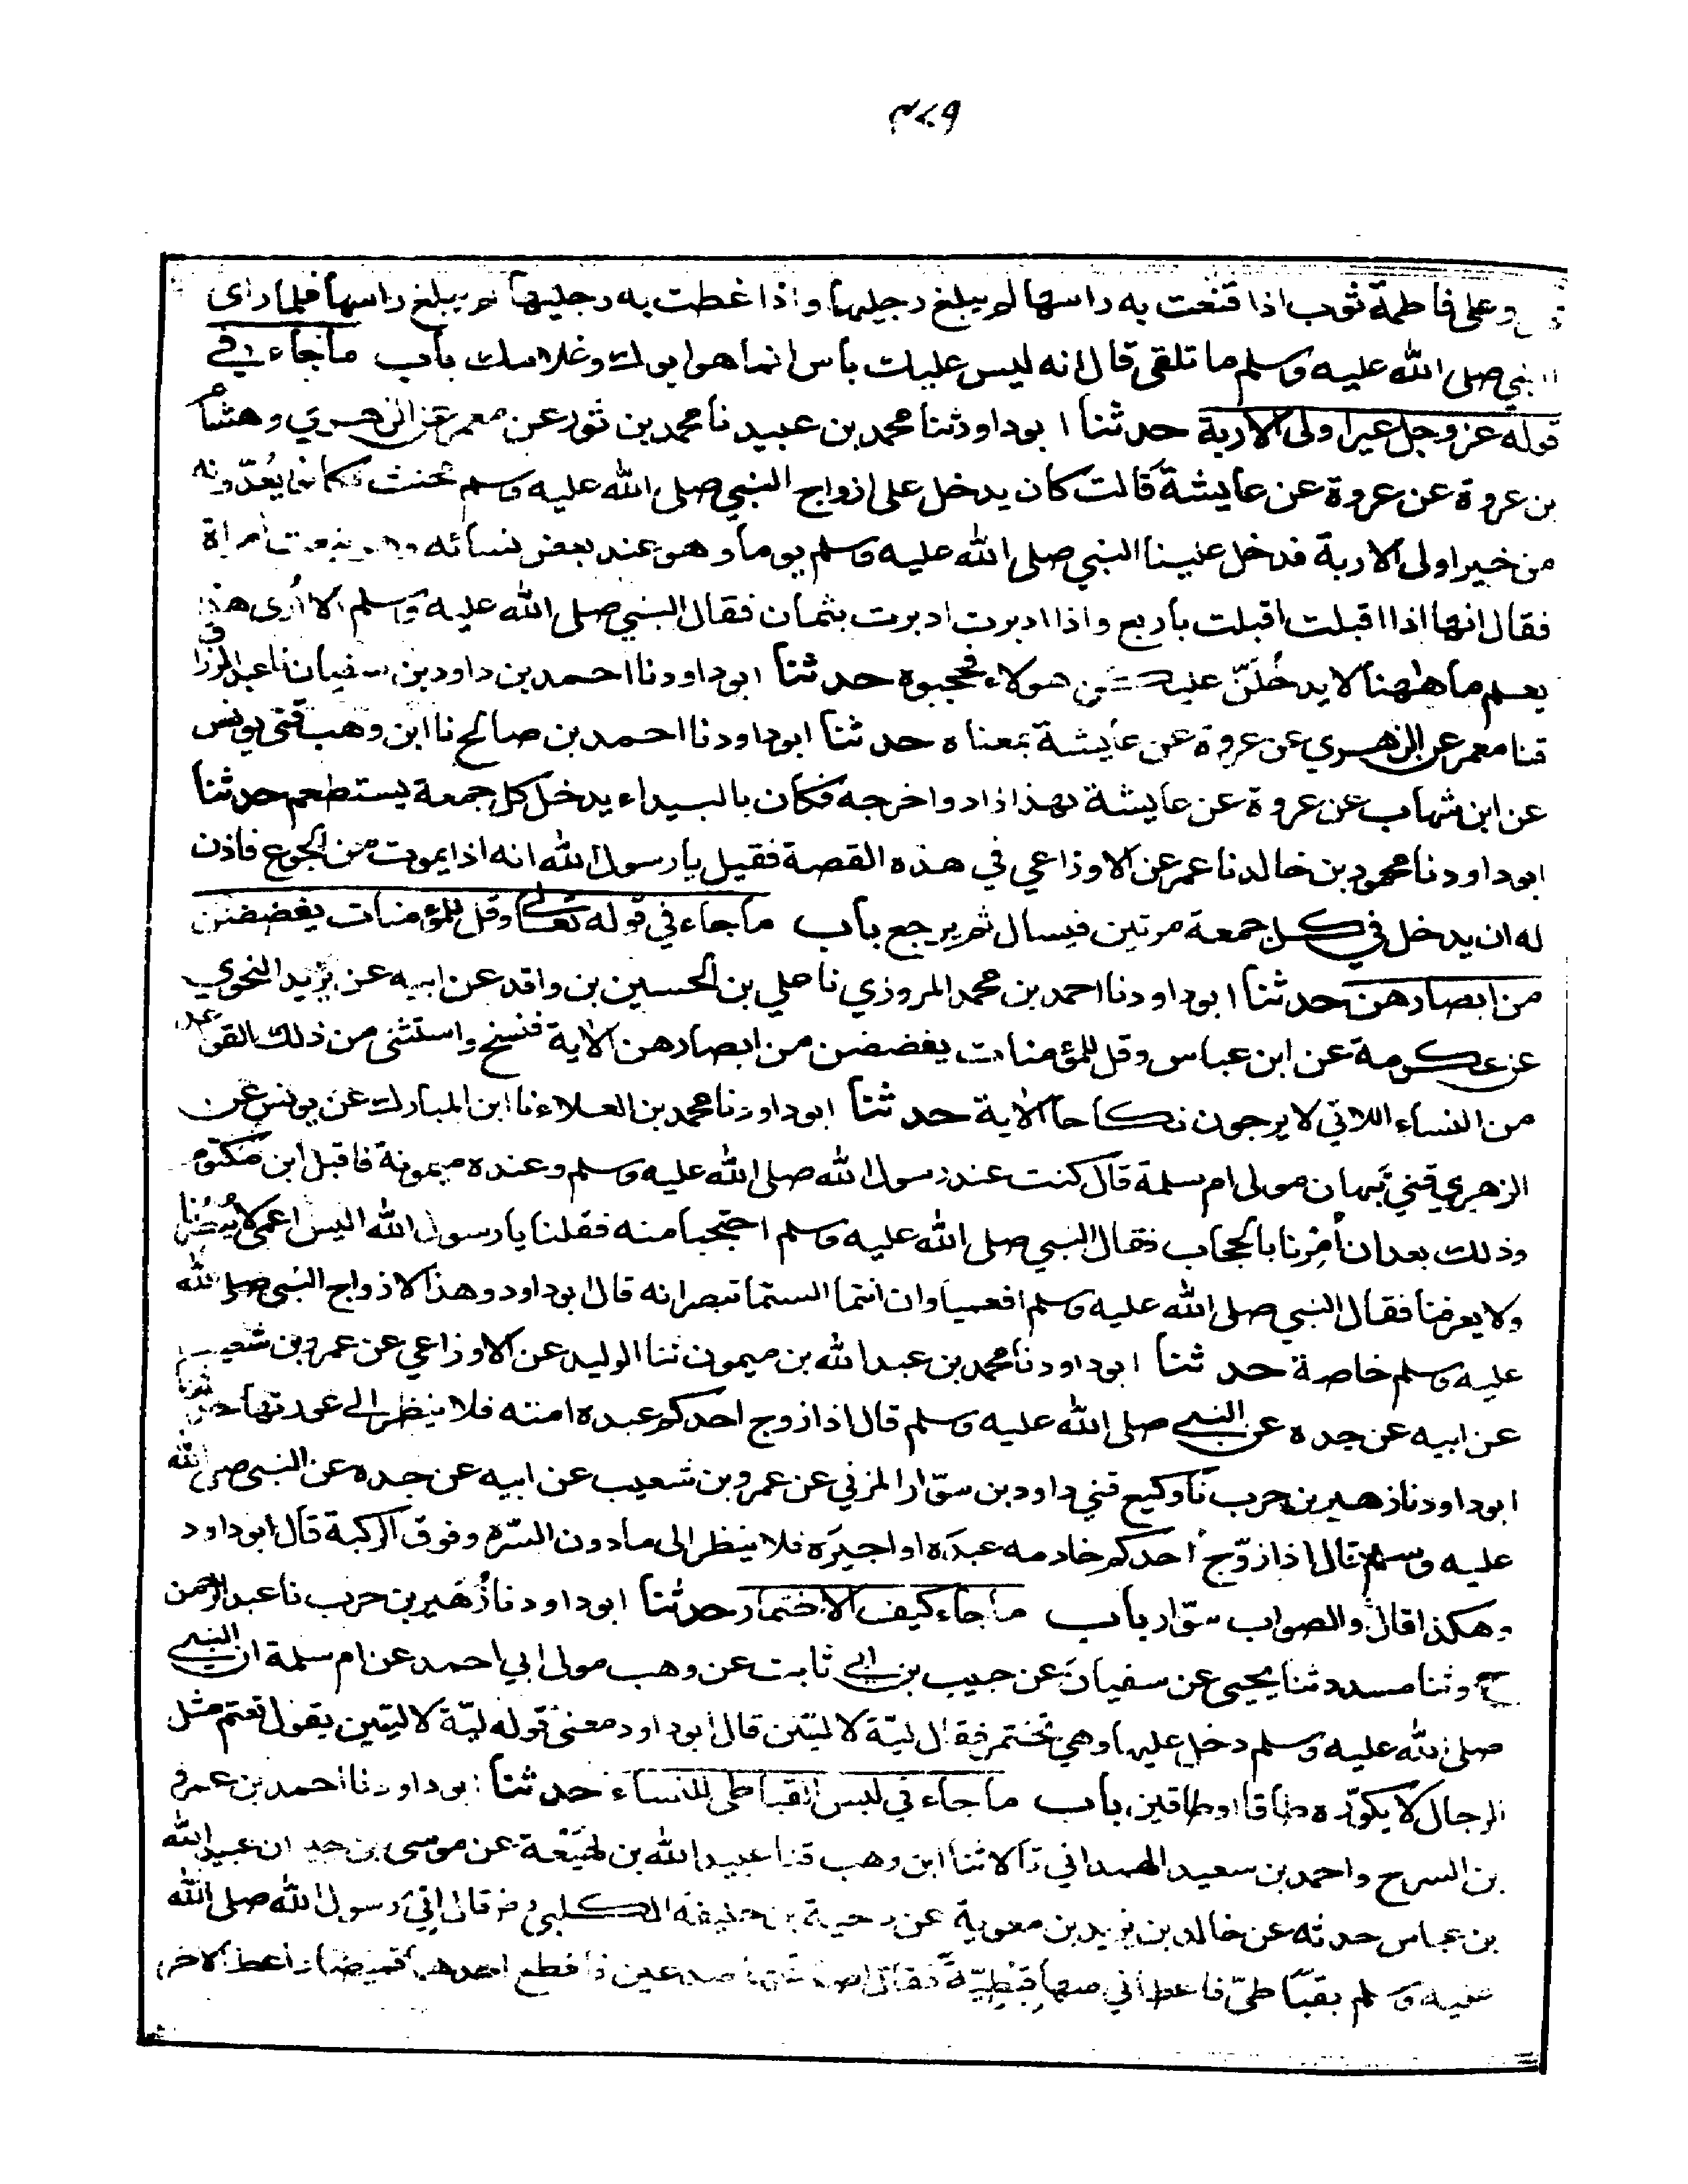 ٣٧٩
وعلى فاطمة ثوب اذا قنعت به راسها لم يبلغ رجليها واذا غطت به رجليها لم يبلغ راسها فلما راى
النبي صلى الله عليه وسلم ما تلقى قال انه ليس عليك باس انما هو ابوك وغلامك باب ما جاء في
قوله عز وجل غير اولى الاربة حدثنا ابو داود ثنا محمد بن عبيد نا محمد بن ثور عن معمر عن الزهري وهشام
بن عروة عن عروة عن عايشة قالت كان يدخل على ازواج النبي صلى الله عليه وسلم مخنث فكانوا يعدّونه
من غير اولى الاربة فدخل علينا النبي صلى الله عليه وسلم يوما وهو عند بعض نسائه وهو ينعت امراة
فقال انها اذا اقبلت اقبلت باربع واذا ادبرت ادبرت بثمان فقال النبي صلى الله عليه وسلم الا أرى هذا
يعلم ما ههنا لا يدخلنّ عليكن هولاء فحجبوه حدثنا ابو داود نا احمد بن داود بن سفيان نا عبد الرزاق
قنا معمر عن الزهري عن عروة عن عايشة بمعناه حدثنا ابو داود نا احمد بن صالح نا ابن وهب قنى يونس
عن ابن شهاب عن عروة عن عايشة بهذا زاد واخرجه فكان بالبيداء يدخل كل جمعة يستطعم حدثنا
ابو داود نا محمود بن خالد نا عمر عن الاوزاعي في هذه القصة فقيل يا رسول الله انه اذا يموت من الجوع فاذن
له ان يدخل في كل جمعة مرتين فيسال ثم يرجع باب ما جاء في قوله تعالى وقل للمؤمنات يغضضن
من ابصارهن حدثنا ابو داود نا احمد بن محمد المروزي نا علي بن الحسين بن واقد عن ابيه عن يزيد النحوي
عن عكرمة عن ابن عباس وقل للمؤمنات يغضضن من ابصارهن الاية فنسخ واستثنى من ذلك القواعد
من النساء اللاتي لا يرجون نكاحا الاية حدثنا ابو داود نا محمد بن العلاء نا ابن المبارك عن يونس عن
الزهري قني نبهان مولى ام سلمة قال كنت عند رسول الله صلى الله عليه وسلم وعنده ميمونة فاقبل ابن مكتوم
وذلك بعد ان أمرنا بالحجاب فقال النبي صلى الله عليه وسلم احتجبا منه فقلنا يا رسول الله اليس اعمى لا يبصرنا
ولا يعرفنا فقال النبي صلى الله عليه وسلم افعمياوان انتما الستما تبصرانه قال ابو داود وهذا لازواج النبي صلى الله
عليه وسلم خاصة حدثنا ابو داود نا محمد بن عبد الله بن ميمون ثنا الوليد عن الاوزاعي عن عمرو بن شعيب
عن ابيه عن جده عن النبي صلى الله عليه وسلم قال اذا زوج احدكم عبده امته فلا ينظر الى عورتها حدثنا
ابو داود نا زهير بن حرب نا وكيع قني داود بن سوّار المزني عن عمرو بن شعيب عن ابيه عن جده عن النبي صلى الله
عليه وسلم قال اذا زوّج أحدكم خادمه عبدَه او اجيرَه فلا ينظر الى ما دون السّرة وفوق الركبة قال ابو داود
وهكذا قال والصواب سوّار باب ما جاء كيف الاختمار حدثنا ابو داود نا زُهَير بن حرب نا عبد الرحمن
ح وثنا مسدد ثنا يحيى عن سفيان عن حبيب بن ابي ثابت عن وهب مولى ابي احمد عن ام سلمة ان النبي
صلى الله عليه وسلم دخل عليها وهي تختمر فقال ليّة لا ليتين قال ابو داود معنى قوله ليّة لا ليتين يقول تعتم مثل
الرجال لا يكوّره طاقا او طاقين باب ما جاء في لبس القباطى للنساء حدثنا ابو داود نا احمد بن عمرو
بن السرح واحمد بن سعيد الهمداني قالا ثنا ابن وهب قنا عبد الله بن لهيعة عن موسى بن جبير ان عبيد الله
بن عباس حدثه عن خالد بن يزيد بن معوية عن دحية بن خليفة الكلبي قال اتي رسول الله صلى الله
عليه وسلم بقباطيّ فاعطاني منها قبطيّة فقال اصدعها صدعين فاقطع احدهما قميصا واعط الاخر